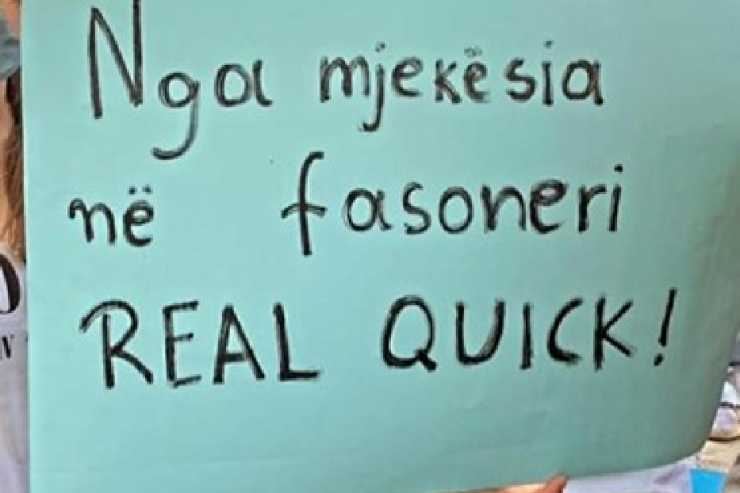 Nga mjekësia
në fasoneri
REAL QUICK!